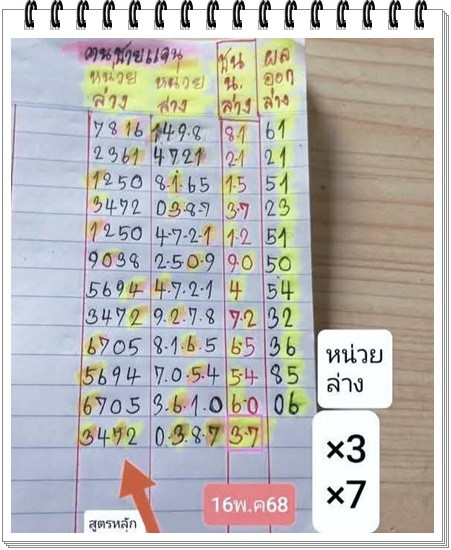 คนชายแดน
หน่วย ล่าง
หน่วย ล่าง
ชน น. ล่าง
ผล ออก ล่าง
7816 149.8 8.1 61
2361 4721 2.1 21
1250 8.1.65 1.5 51
3472 03.8.7 3.7 23
1250 4.7.2.1 1.2 51
9038 2.50.9 90 50
5694 4.7.2.1 4 54
3472 9.2.7.8 7.2 32
6705 8.1.6.5 65 36
5694 7.0.5.4 5.4 85
6705 3.6.1.0 6.0 06
3472 0.3.8.7 3.7
หน่วย
ล่าง
×3
×7
16พ.ค68
สูตรหลัก